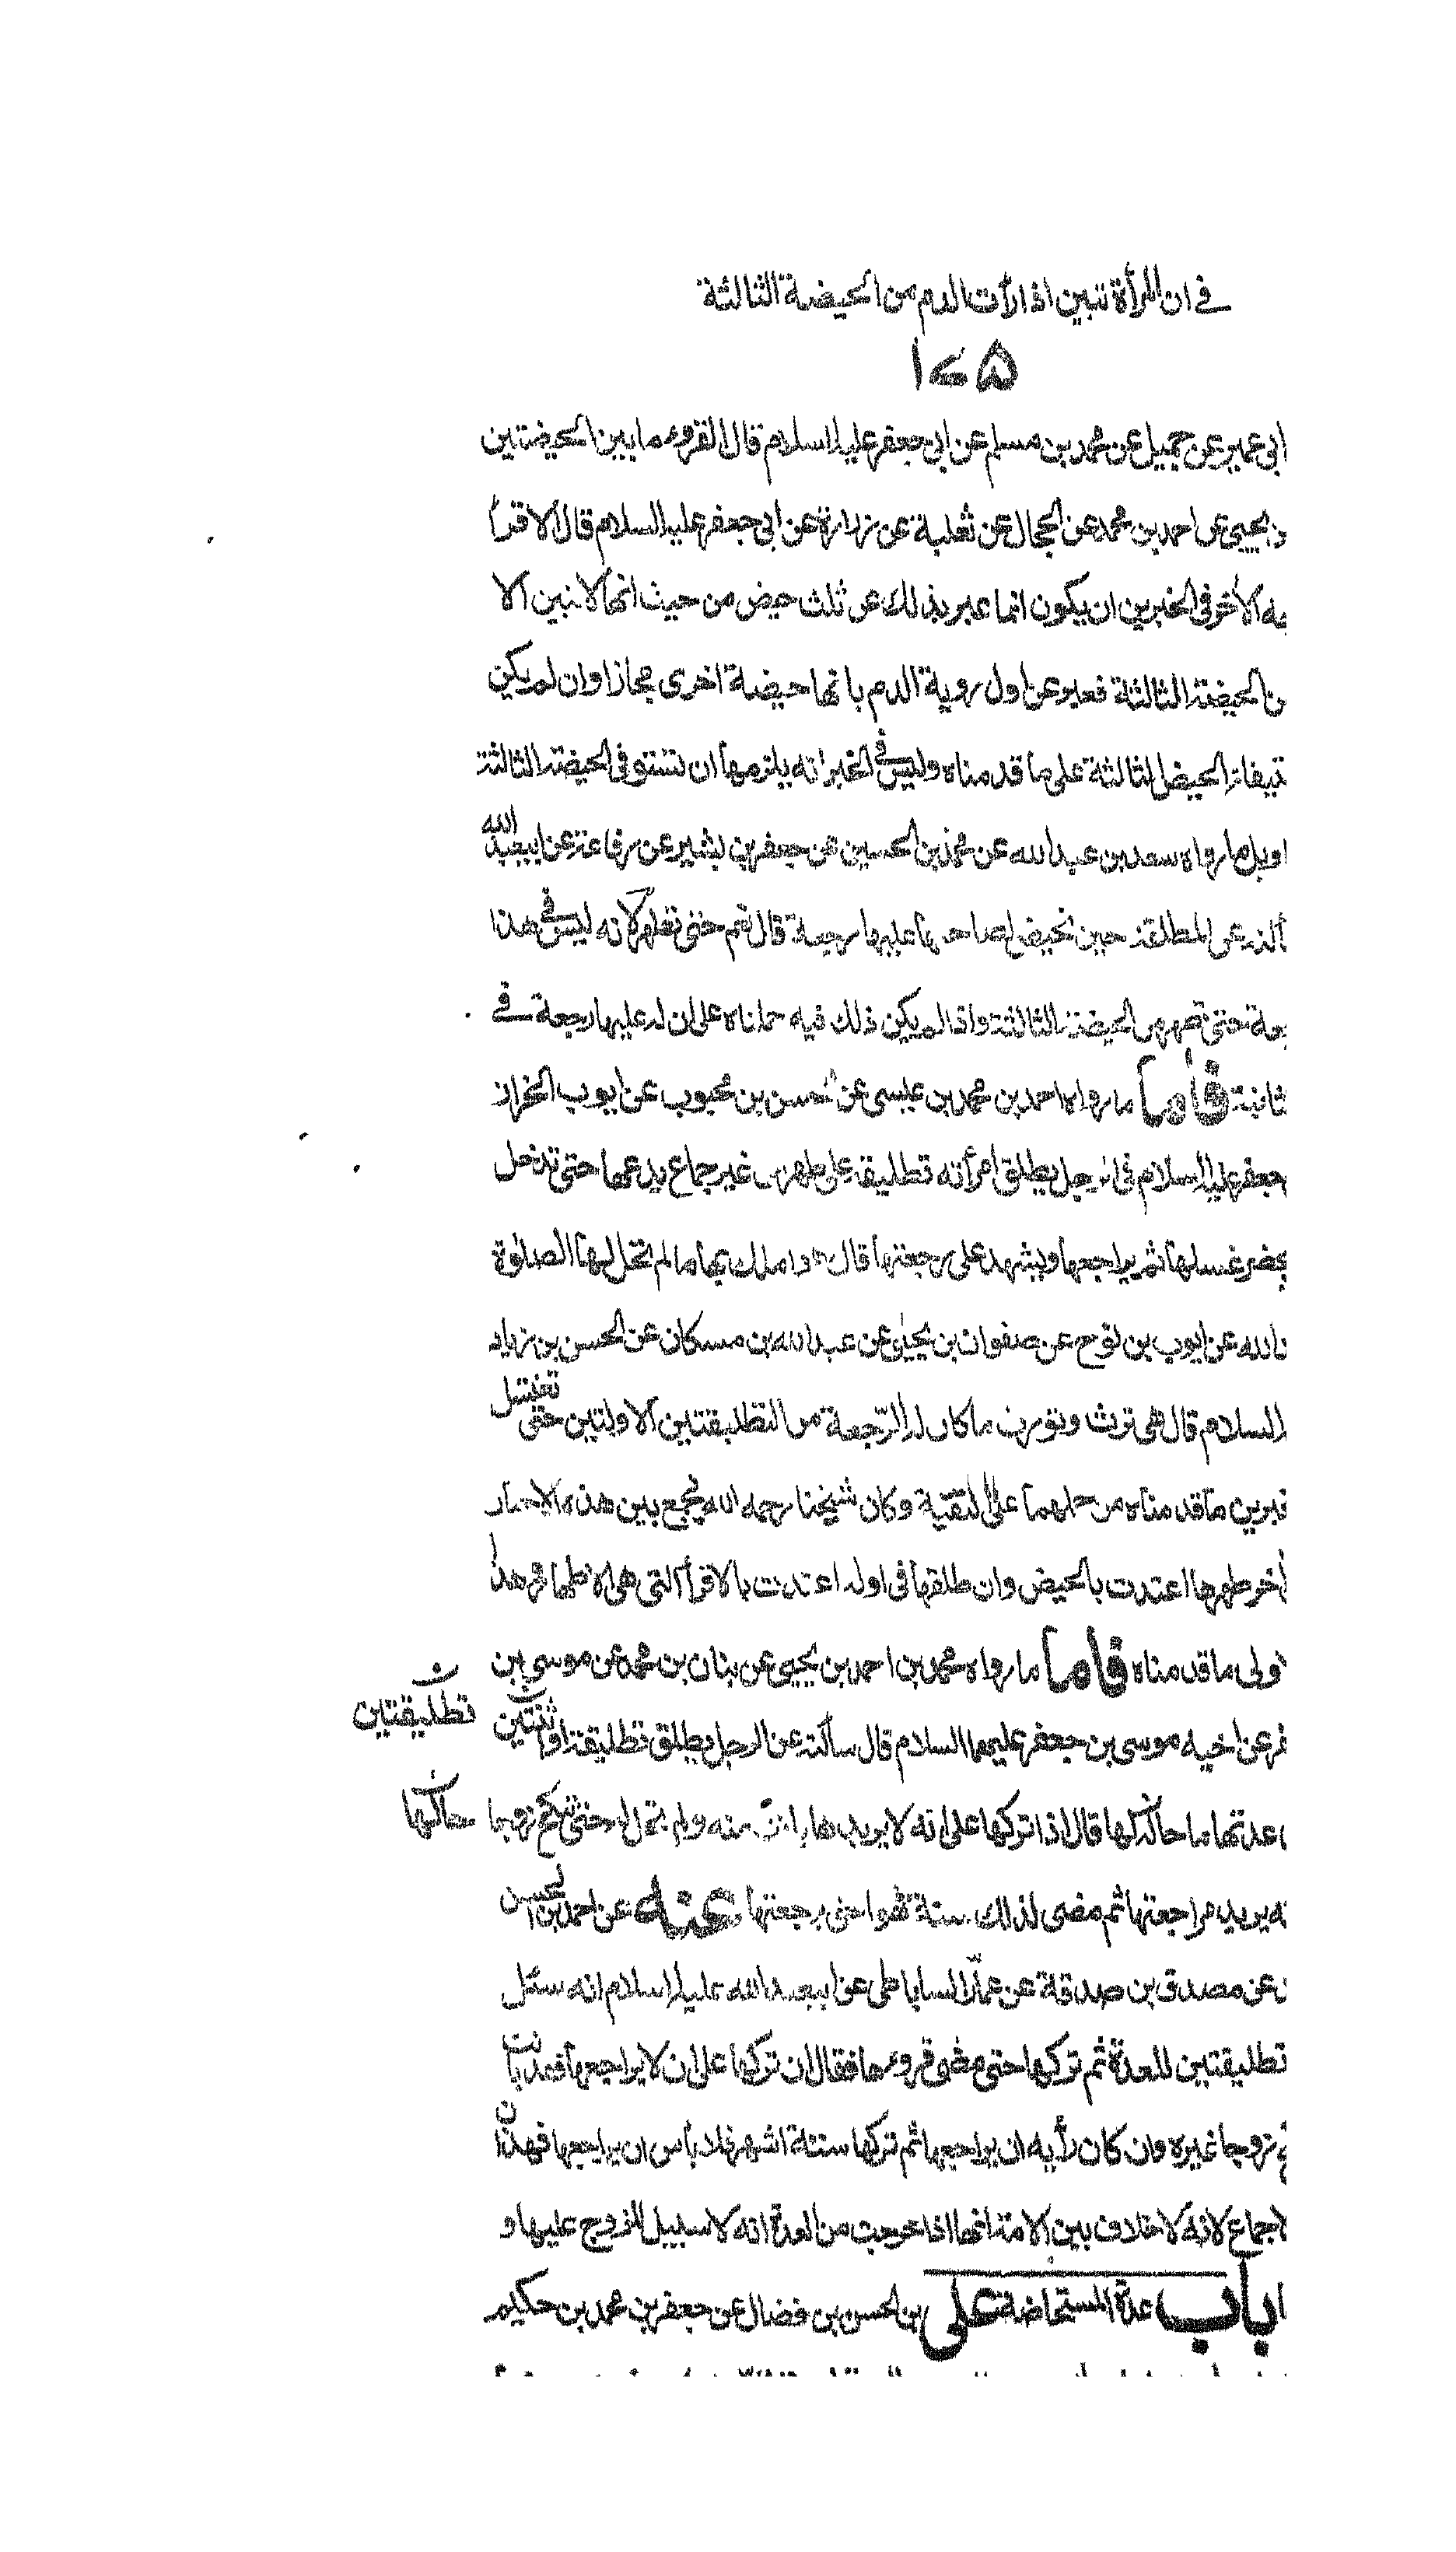 في ان المرأة تبين اذا رأت الدم من الحيضة الثالثة
ابى عمير عن جميل عن محمد بن مسلم عن ابى جعفر عليه السلام قال القروء ما بين الحيضتين
يحيى عن احمد بن محمد عن الحجال عن ثعلبة عن زرارة عن ابى جعفر عليه السلام قال الاقرأ
الآخر فى الخبرين ان يكون انما عبر بذلك عن ثلث حيض من حيث انها لا تبين الا
من الحيضة الثالثة فعبر عن اول روية الدم بانها حيضة اخرى مجازا وان لم يكن
الحيض الثالثة على ما قدمناه وليس فى الخبر انه يلزمها ان تستوفى الحيضة الثالثة
ما رواه سعد بن عبد الله عن محمد بن الحسين عن جعفر بن بشير عن رفاعة عن ابيعبد الله
عن المطلقة حين تحيض لصاحبها عليها رجعة قال نعم حتى تطهر لانه ليس فى هذا
حتى تطهر من الحيضة الثالثة واذا لم يكن ذلك فيه حملناه على ان له عليها رجعة فى
فاما ما رواه احمد بن محمد بن عيسى عن الحسن بن محبوب عن ايوب الخزاز
جعفر عليه السلام فى رجل يطلق امرأته تطليقة على طهر من غير جماع يدعها حتى تدخل
غسلها ثم يراجعها ويشهد على رجعتها قال هو املك بها ما لم تحل لها الصلوة
الله عن ايوب بن نوح عن صفوان بن يحيى عن عبد الله بن مسكان عن الحسن بن زياد
السلام قال هى ترث وتورث ما كان له الرجعة من التطليقتين الاولتين حتى تغتسل
ما قدمناه من حملهما على التقية وكان شيخنا رحمه الله يجمع بين هذه الاخبار
آخر طهرها اعتدت بالحيض وان طلقها فى اوله اعتدت بالاقرأ التى هى الاطهار وهذا
ما قدمناه فاما ما رواه محمد بن احمد بن يحيى عن بنان بن محمد عن موسى بن
عن اخيه موسى بن جعفر عليهما السلام قال سألته عن الرجل يطلق تطليقة او ثنتين تطليقتين
عدتها ما حالها قال اذا تركها على انه لا يريدها بانت منه ولم تحل له حتى تنكح زوجا حالها
يريد مراجعتها ثم مضى لذلك سنة فهو احق برجعتها عنه عن احمد بن الحسن
عن مصدق بن صدقة عن عمار الساباطى عن ابيعبد الله عليه السلام انه سئل
تطليقتين للعدة ثم تركها حتى مضى قروءها فقال ان تركها على ان لا يراجعها فقد بانت
زوجا غيره وان كان رأيه ان يراجعها ثم تركها ستة اشهر فلا بأس ان يراجعها فهذا
لانه لا خلاف بين الامة انها اذا خرجت من العدة انه لا سبيل للزوج عليها و
باب عدة المستحاضة على بن الحسن بن فضال عن جعفر بن محمد بن حكيم